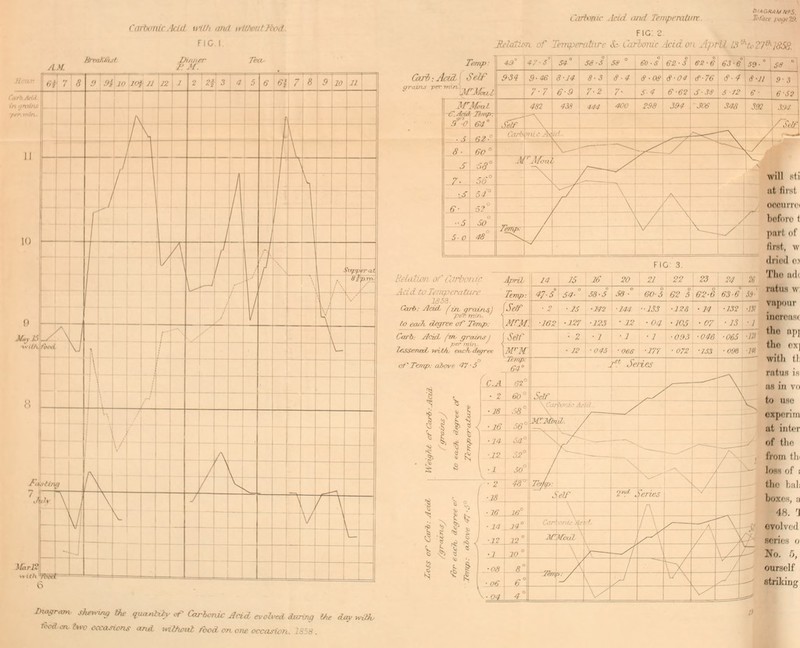 Carbonic Acid with and without Food.
FIG. 1.
Breakfast. Dinner Tea.
A.M. P.M.
Hours 6¾ 7 8 9 9½ 10 10¾ 11 12 1 2 2½ 3 4 5 6 6½ 7 8 9 10 11
Carb. Acid
in grains
per min.
11
10
Supper at
8½ p.m.
9
May 15
with food.
8
Fasting
7
July
Mar. 12
with food
6
Diagram shewing the quantity of Carbonic Acid evolved during the day with
food on two occasions and without food on one occasion. 1858.
DIAGRAM Nº 5.
To face page
Carbonic Acid and Temperature.
FIG. 2.
Relation of Temperature & Carbonic Acid on April 13th to 27th 1858.
Temp: 45° 47·5° 54° 58·5° 58° 60·5° 62·5° 62·6° 63·6° 59·° 58°
Carb: Acid Self 9·54 9·46 8·14 8·3 8·4 8·08 8·04 8·76 8·4 8·11 9·3
grains per min. Mr Moul 7·7 6·9 7·2 7· 5·4 6·62 5·38 5·12 6· 6·52
Mr Moul 482 438 444 400 298 394 306 348 392 394
C. Acid Temp:
9·0 64°
·5 62°
8· 60°
·5 58°
7· 56°
·5 54°
6· 52°
·5 50°
5·0 48°
Self Self
Carbonic Acid.
Mr Moul
Temp:
FIG: 3.
Relation of Carbonic
Acid to Temperature
1858.
April: 14 15 16 20 21 22 23 24 26
Temp: 47·5° 54·° 58·5° 58·° 60·5 62·5 62·6 63·6° 59·
Carb: Acid (in grains)
per min.
to each degree of Temp:
Self ·2 ·15 ·142 ·144 ·133 ·128 ·14 ·132
Mr M. ·162 ·127 ·123 ·12 ·04 ·105 ·07 ·13 ·1
Carb: Acid (in grains)
per min.
lessened with each degree
of Temp: above 47·5°
Self ·2 ·1 ·1 ·1 ·095 ·046 ·065
Mr M. ·12 ·045 ·068 ·177 ·072 ·153 ·096
Temp:
64°
1st Series
C.A. 62°
·2 60°
·18 58°
·16 56°
·14 54°
·12 52°
·1 50°
·2 48°
·18
·16 16°
·14 14°
·12 12°
·1 10°
·08 8°
·06 6°
·04 4°
Self
Carbonic Acid.
Mr Moul
Temp:
Self 2nd Series
Carbonic Acid.
Mr Moul
Temp:
Weight of Carb: Acid
(grains)
to each degree of
Temperature
Loss of Carb: Acid
(grains)
for each degree of
Temp: above 47·5°
will sti
at first
occurre
before t
part of
first, w
dried ex
The ad
ratus w
vapour
increase
the app
the exp
with th
ratus is
as in vo
to use
experim
at inter
of the
from th
loss of
the bal
boxes, a
48. T
evolved
series o
No. 5,
ourself
striking